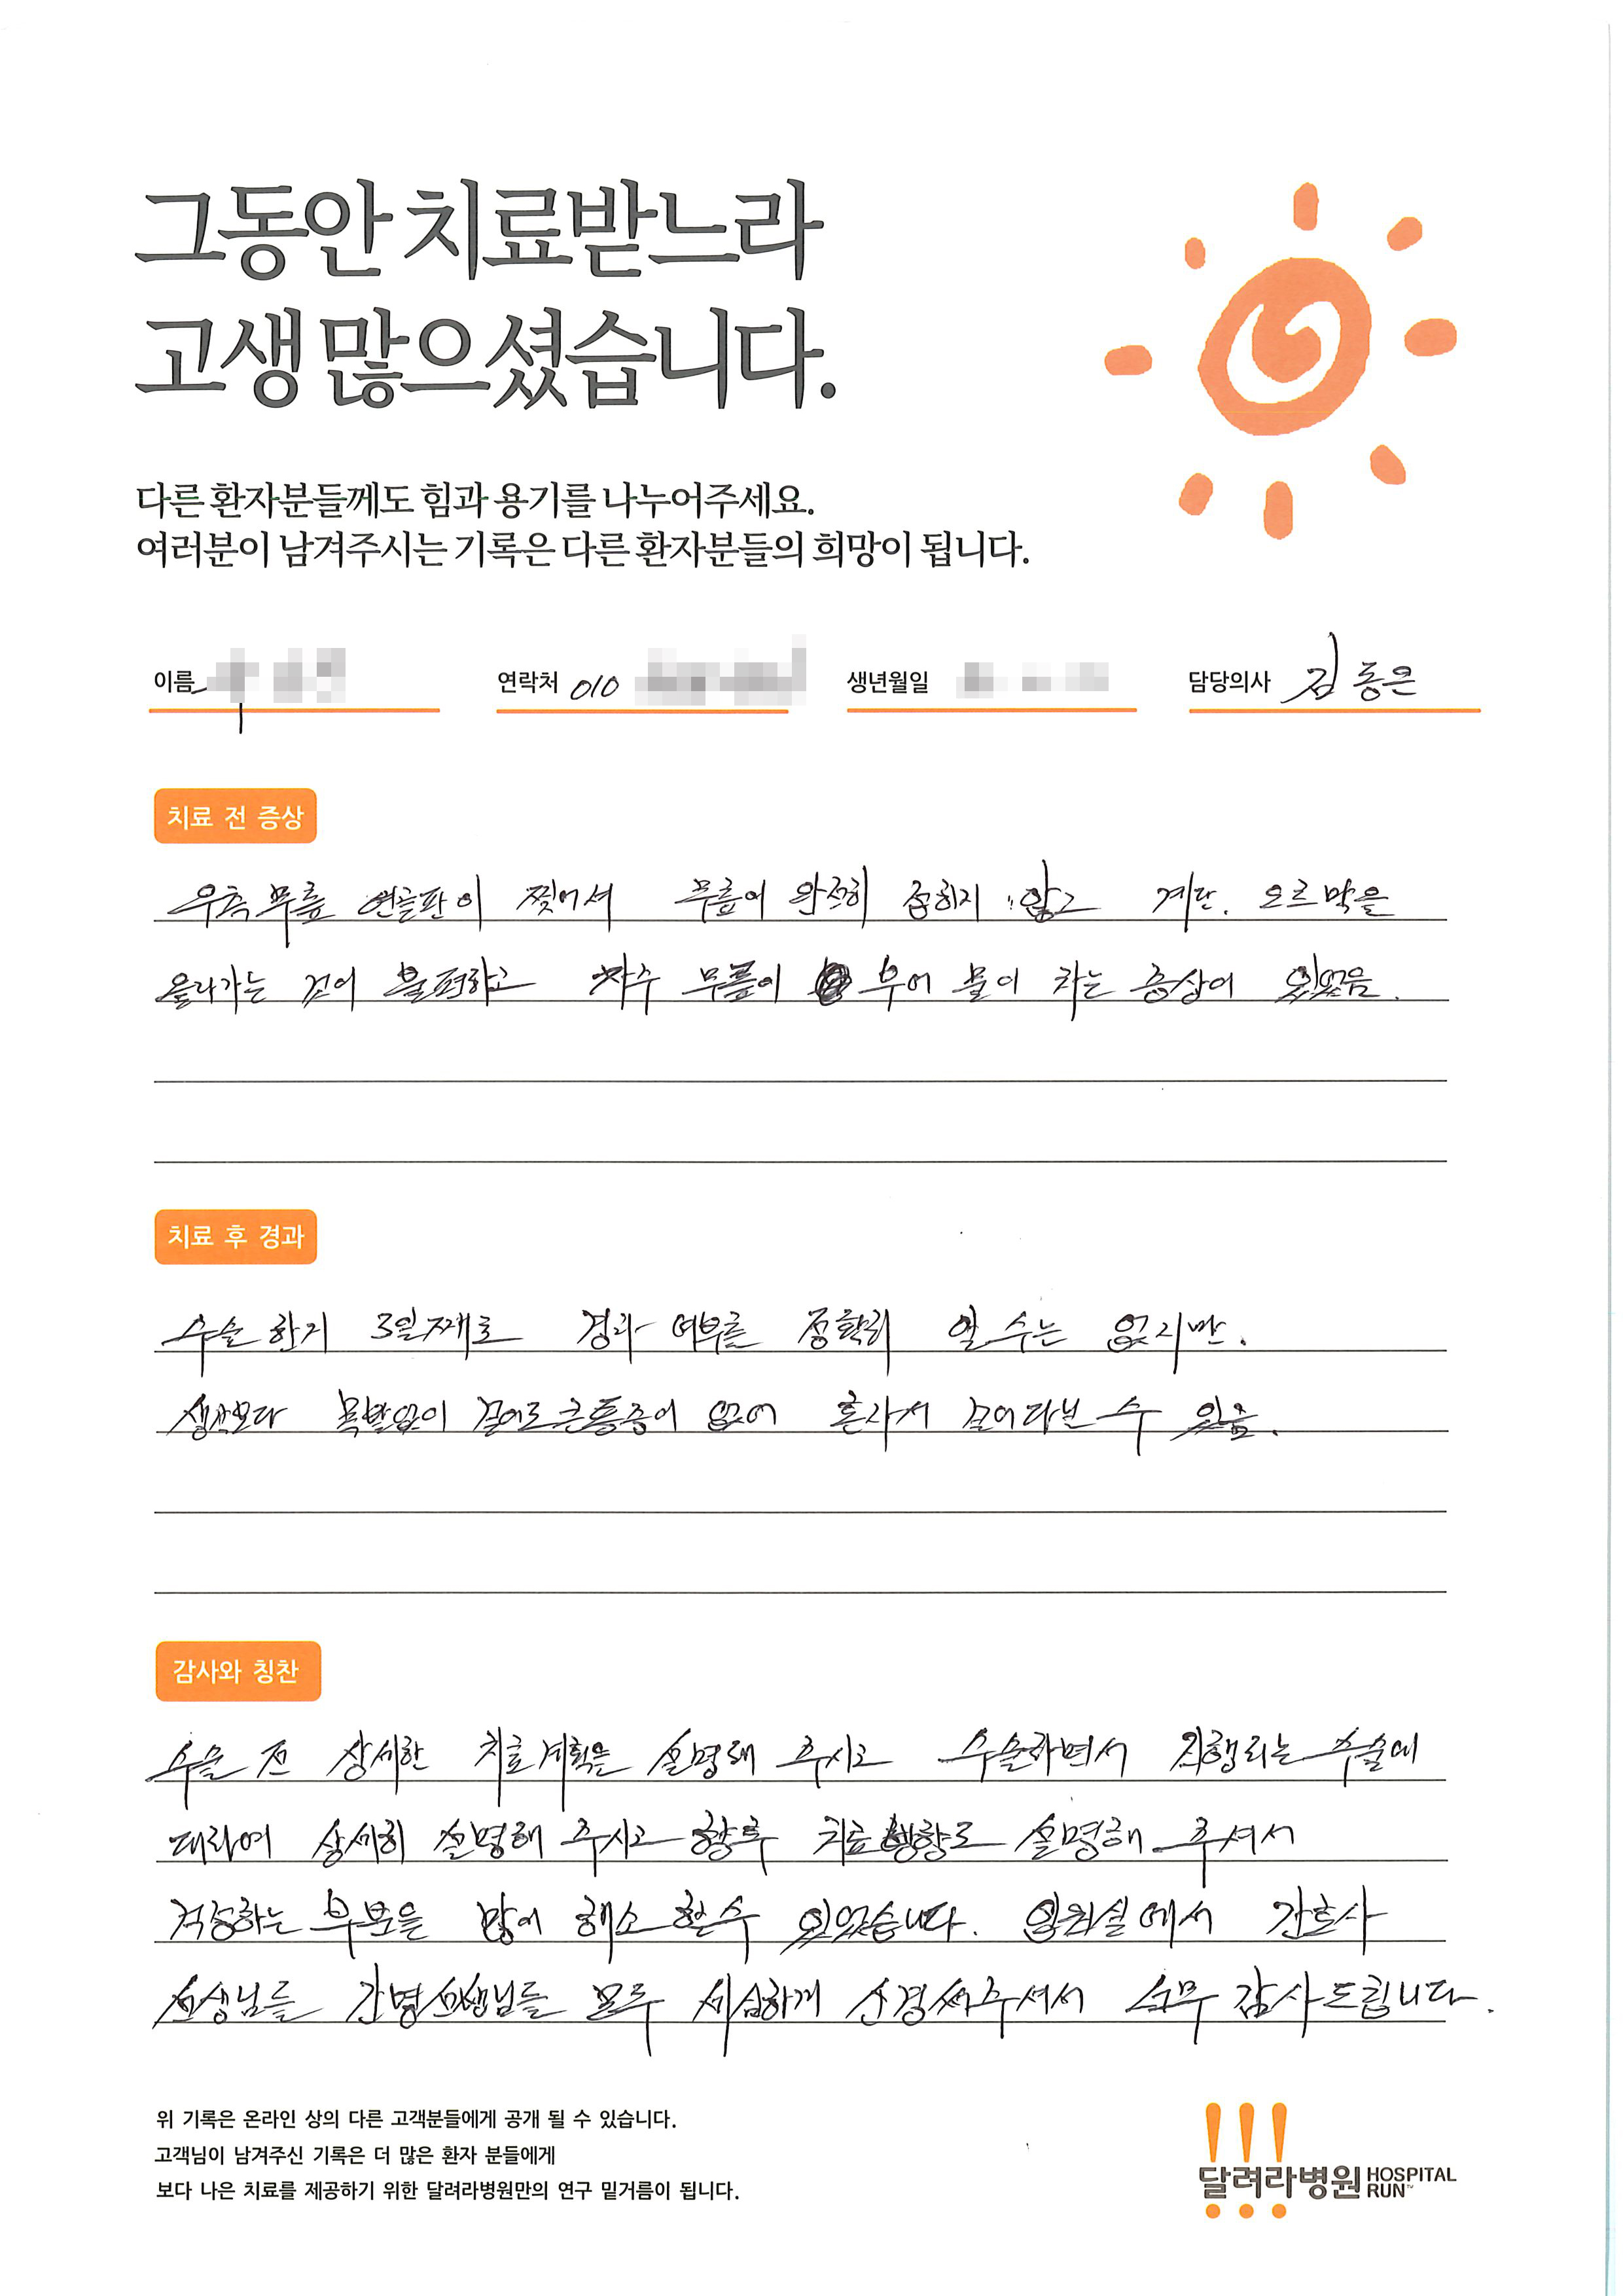 그동안 치료받느라
고생 많으셨습니다.
다른 환자분들께도 힘과 용기를 나누어주세요.
여러분이 남겨주시는 기록은 다른 환자분들의 희망이 됩니다.
이름 연락처 010 생년월일 담당의사 김동은
치료 전 증상
우측무릎 연골판이 찢어서 무릎이 완전히 굽히지 않고 계단. 오르막을
올라가는 것이 불편하고 자주 무릎이 부어 물이 차는 증상이 있었음.
치료 후 경과
수술한지 3일째로 경과 여부를 정확히 알 수는 없지만.
생각보다 목발없이 걸어도 큰통증이 없어 혼자서 걸어다닐 수 있음.
감사와 칭찬
수술 전 상세한 치료계획을 설명해 주시고 수술하면서 진행되는 수술에
대하여 상세히 설명해 주시고 향후 치료방향도 설명해 주셔서
걱정하는 부분을 많이 해소 할수 있었습니다. 입원실에서 간호사
선생님들 간병선생님들 모두 세심하게 신경써주셔서 너무 감사드립니다.
위 기록은 온라인 상의 다른 고객분들에게 공개 될 수 있습니다.
고객님이 남겨주신 기록은 더 많은 환자 분들에게
보다 나은 치료를 제공하기 위한 달려라병원만의 연구 밑거름이 됩니다.
달려라병원 HOSPITAL RUN